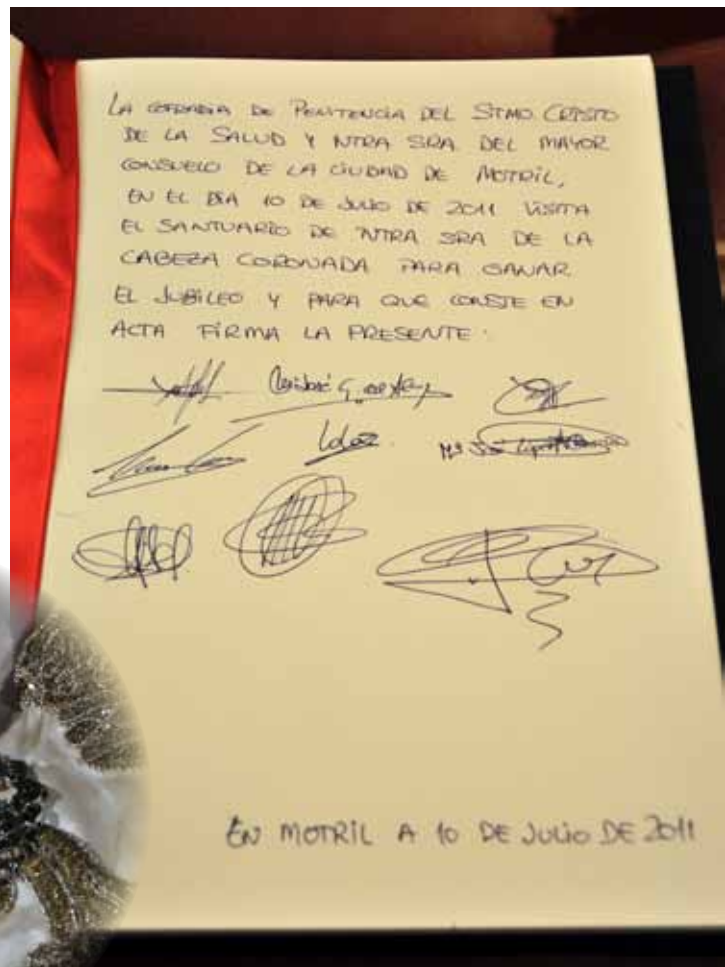 LA COFRADIA DE PENITENCIA DEL STMO. CRISTO
DE LA SALUD Y NTRA SRA DEL MAYOR
CONSUELO DE LA CIUDAD DE MOTRIL,
EN EL DIA 10 DE JULIO DE 2011 VISITA
EL SANTUARIO DE NTRA SRA DE LA
CABEZA CORONADA PARA GANAR
EL JUBILEO Y PARA QUE CONSTE EN
ACTA FIRMA LA PRESENTE.
Mª José
EN MOTRIL A 10 DE JULIO DE 2011